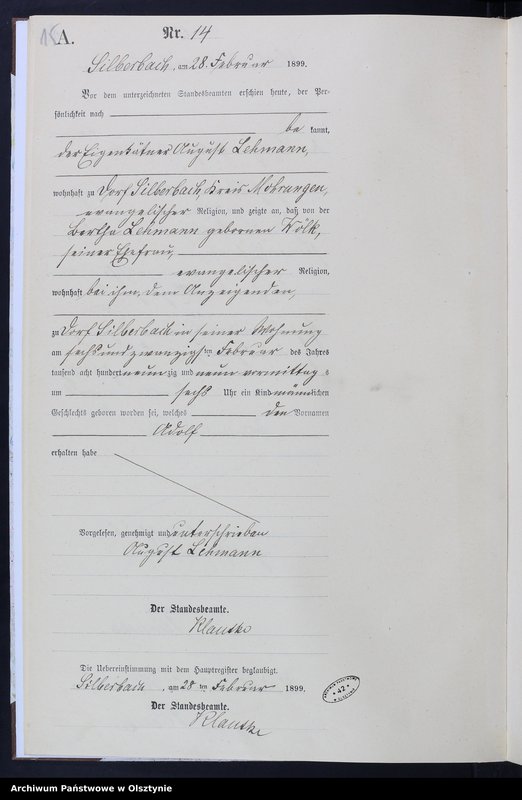 A. Nr. 14
Silberbach, am 28. Februar 1899.
Vor dem unterzeichneten Standesbeamten erschien heute, der Per-
sönlichkeit nach
be kannt,
der Eigenkätner August Lehmann,
wohnhaft zu Dorf Silberbach, Kreis Mohrungen,
evangelischer Religion, und zeigte an, daß von der
Bertha Lehmann geborenen Wölk,
seiner Ehefrau,
evangelischer Religion,
wohnhaft bei ihm, dem Anzeigenden,
zu Dorf Silberbach in seiner Wohnung
am sechsundzwanzigsten Februar des Jahres
tausend acht hundert neunzig und neun vormittags
um sechs Uhr ein Kind männlichen
Geschlechts geboren worden sei, welches den Vornamen
Adolf
erhalten habe
Vorgelesen, genehmigt und unterschrieben
August Lehmann
Der Standesbeamte.
Klautke
Die Uebereinstimmung mit dem Hauptregister beglaubigt.
Silberbach, am 28ten Februar 1899.
Der Standesbeamte.
Klautke
Archiwum Państwowe w Olsztynie